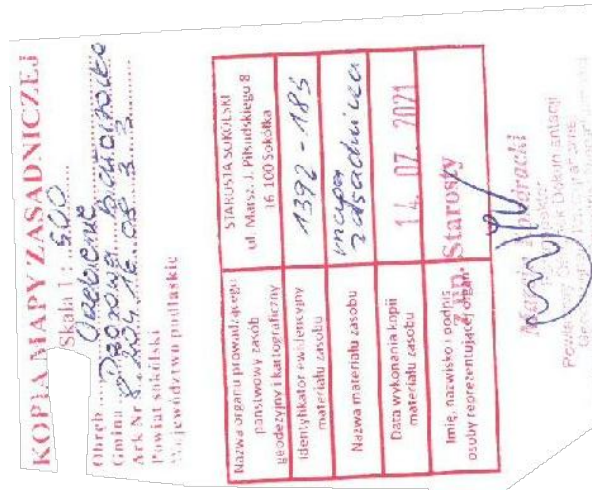 KOPIA MAPY ZASADNICZEJ
Skala 1 : 500
Obręb
Gmina Dąbrowa Białostocka
Ark Nr 8.204.16.08.3.3
Powiat sokólski
Województwo podlaskie
Nazwa organu prowadzącego państwowy zasób geodezyjny i kartograficzny
STAROSTA SOKÓLSKI
ul. Marsz. J. Piłsudskiego 8
16-100 Sokółka
Identyfikator ewidencyjny materiału zasobu
1392 - 185
Nazwa materiału zasobu
mapa zasadnicza
Data wykonania kopii materiału zasobu
14. 07. 2021
Imię, nazwisko i podpis osoby reprezentującej organ
Z up. Starosty